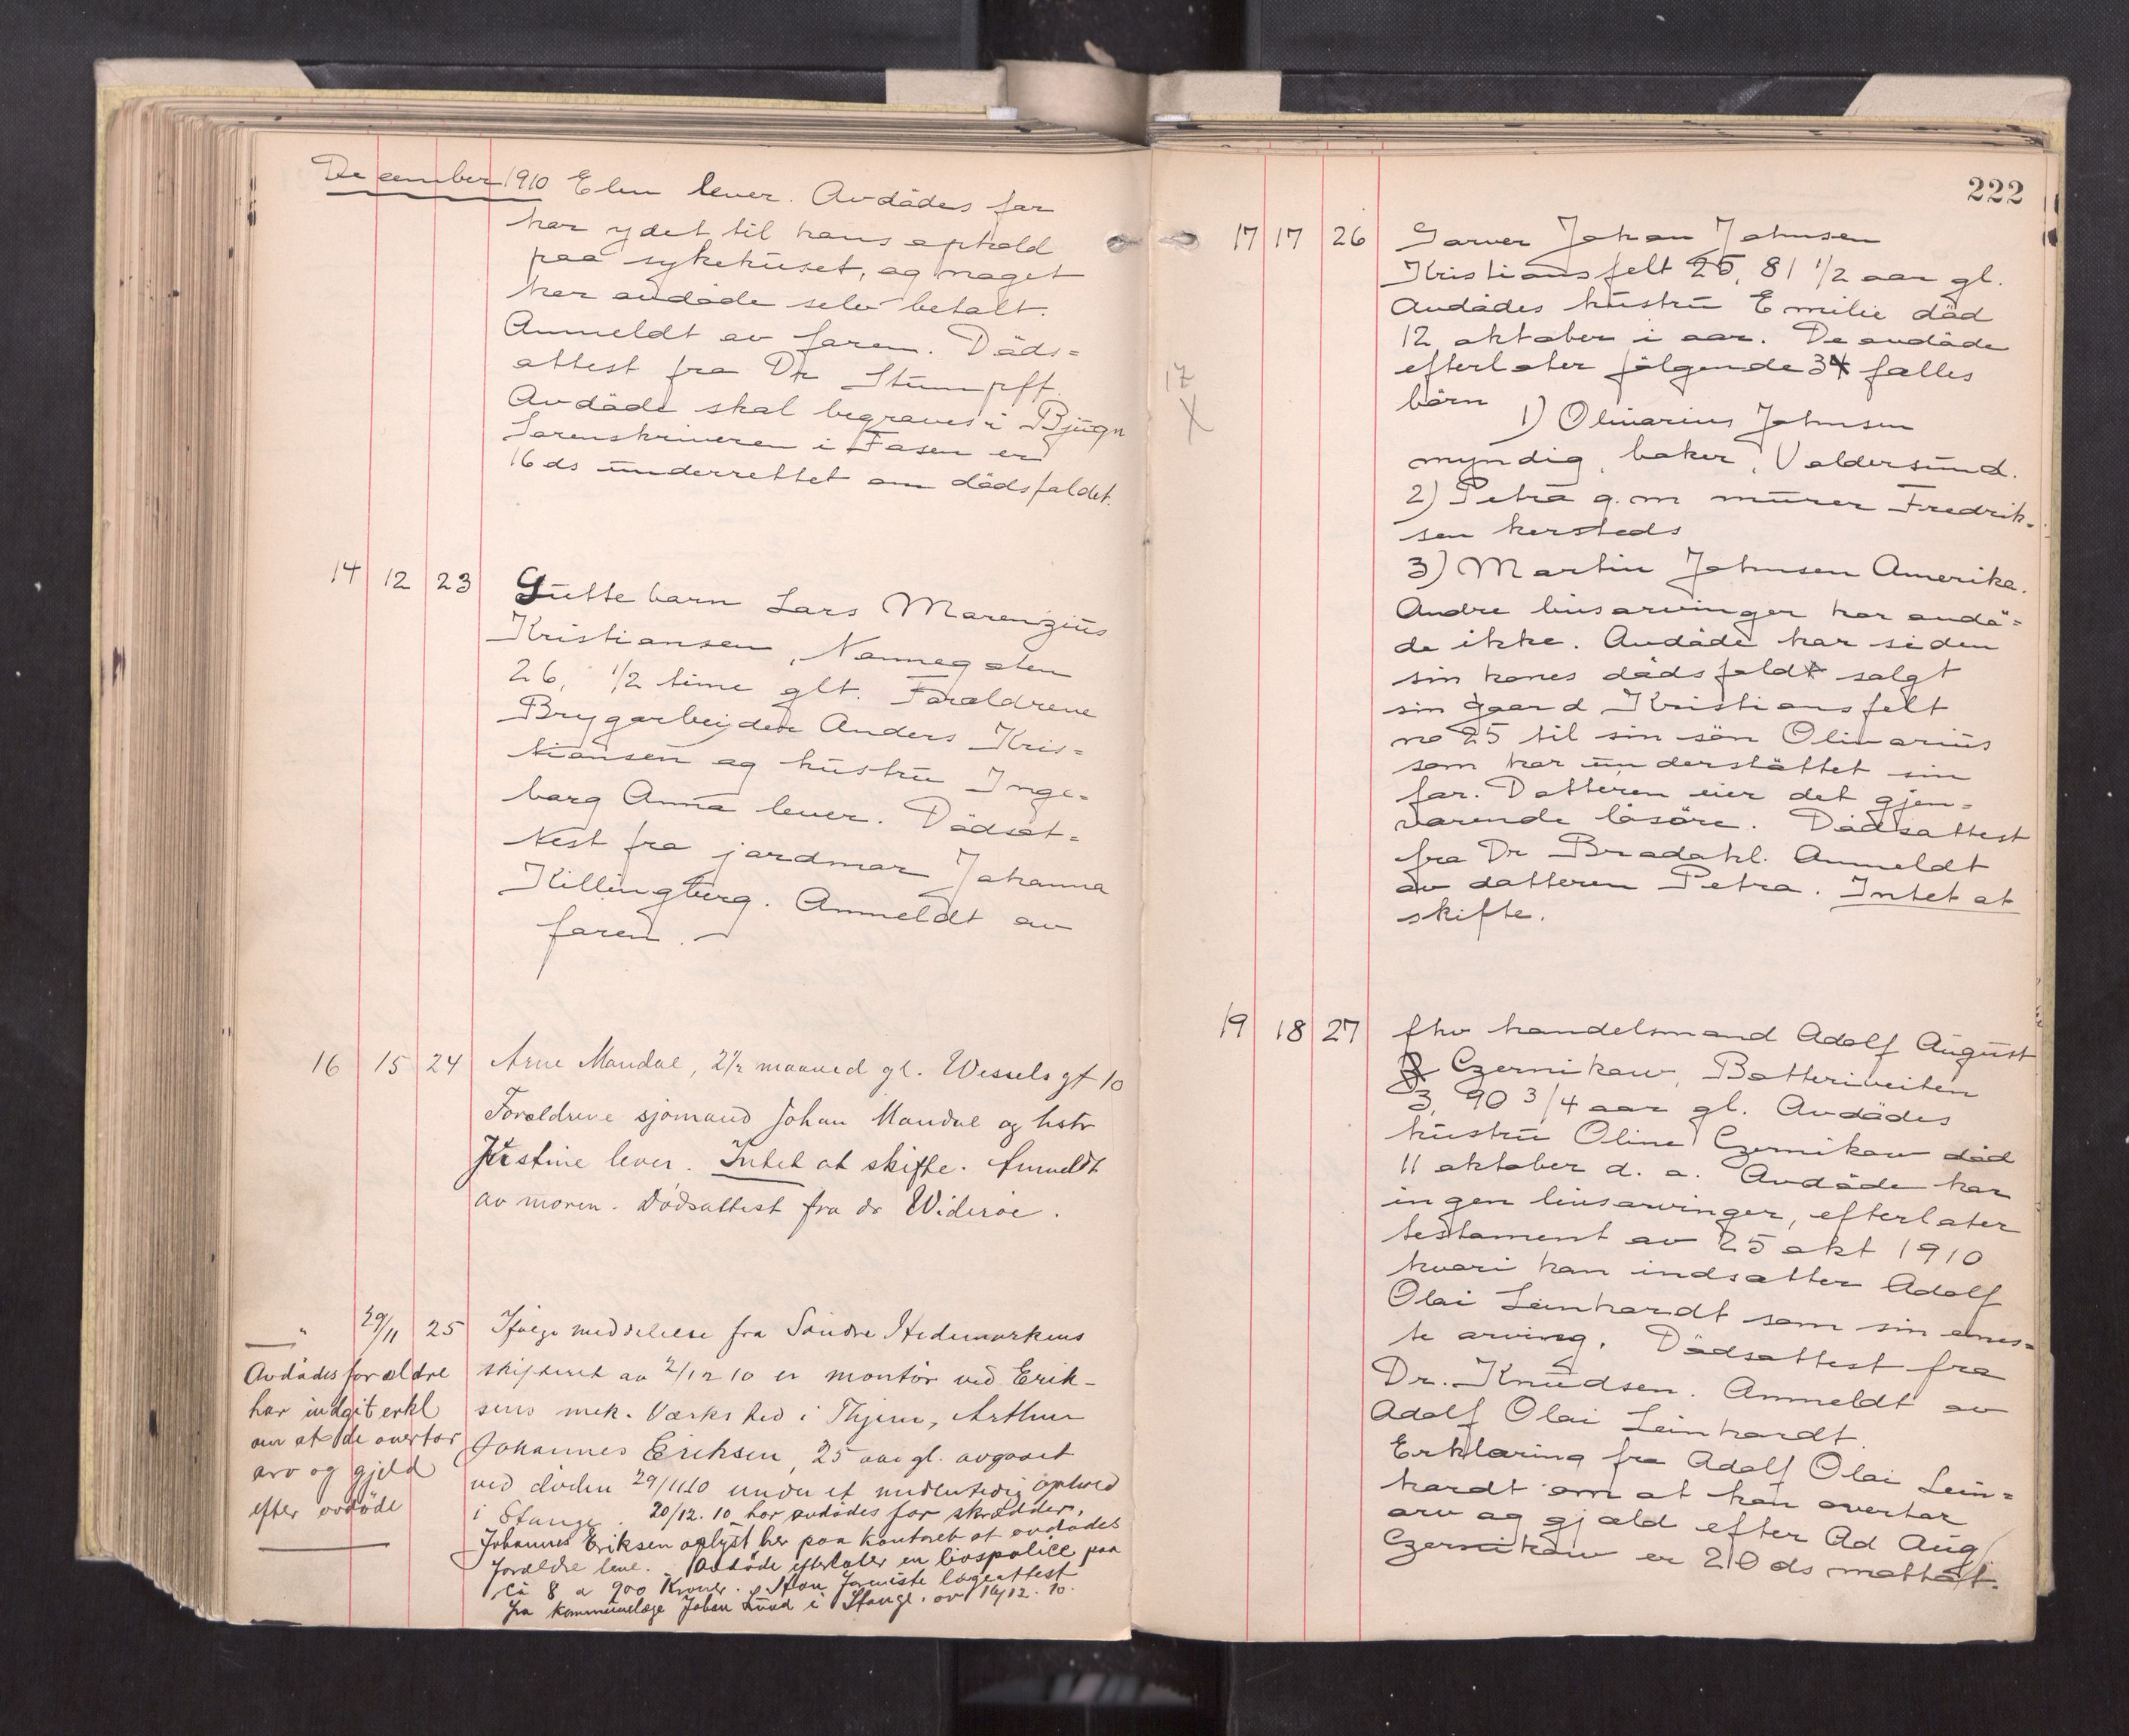 December 1910 Elen lever. Avdödes far
har ydet til hans ophold
paa sykehuset, og noget
har avdöde selv betalt.
Anmeldt av faren. Döds=
attest fra Dr Stumpff.
Avdöde skal begraves i Bjugn
Sorenskriveren i Fosen er
16 ds underrettet om dödsfaldet.
14 12 23 Guttebarn Lars Marenzius
Kristiansen, Nannegaten
26, 1/2 time glt. Forældrene
Brygarbeider Anders Kris=
tiansen og hustru Inge=
borg Anna lever. Dödsat=
test fra jordmor Johanna
Killingberg. Anmeldt av
faren.
16 15 24 Arne Mandal, 2 1/2 maaned gl. Wessels gt 10
Forældrene sjömand Johan Mandal og hstr
Kristine lever. Intet at skifte. Anmeldt
av moren. Dödsattest fra dr Wideröe.
— " 29/11 25 Ifölge meddelelse fra Söndre Hedemarkens
skifteret av 2/12 10 er montör ved Erik-
sens mek. Værksted i Thjem, Arthur
Johannes Eriksen, 25 aar gl. avgaaet
ved döden 29/11 10 under et midlertidig ophold
i Stange. 20/12. 10 har avdödes far skrædder,
Johannes Eriksen oplyst her paa kontoret at avdödes
forældre leve. Avdöde efterlater en livspolice paa
ca 8 a 900 Kroner. Han foreviste lægeattest
fra kommunelæge Johan Lund i Stange av 16/12. 10.
Avdödes forældre
har indgit erkl
om at de overtar
arv og gjeld
efter avdöde
222
17
X
17 17 26 Garver Johan Johnsen
Kristiansfelt 25, 81 1/2 aar gl.
Avdödes hustru Emilie död
12 oktober i aar. De avdöde
efterlater fölgende 3 4 fælles
börn
1) Olivarius Johnsen
myndig, baker, Valdersund.
2) Petra g. m murer Fredrik-
sen hersteds
3) Martin Johnsen Amerika.
Andre livsarvinger har avdö=
de ikke. Avdöde har siden
sin kones dödsfald solgt
sin gaard Kristiansfelt
no 25 til sin sön Olivarius
som har understöttet sin
far. Datteren eier det gjen=
værende lösöre. Dödsattest
fra Dr Bradahl. Anmeldt
av datteren Petra. Intet at
skifte.
19 18 27 fhv handelsmand Adolf August
Czernikow, Batteriveiten
3, 90 3/4 aar gl. Avdödes
hustru Oline Czernikow död
11 oktober d. a. Avdöde har
ingen livsarvinger, efterlater
testament av 25 okt 1910
hvori han indsætter Adolf
Olai Leinhardt som sin enes=
te arving. Dödsattest fra
Dr. Knudsen. Anmeldt av
Adolf Olai Leinhardt.
Erklæring fra Adolf Olai Lein=
hardt om at han overtar
arv og gjæld efter Ad Aug
Czernikow er 210 ds mottat.